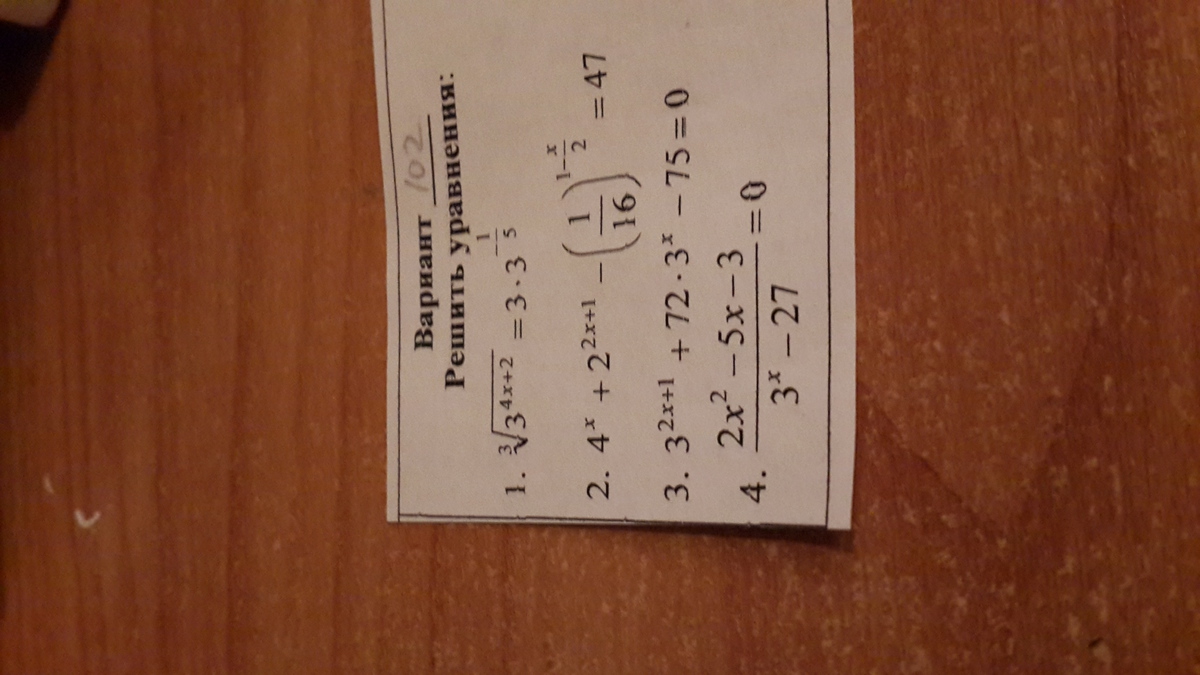 Вариант 102
Решить уравнения:
1. $\sqrt[3]{3^{4x+2}} = 3 \cdot 3^{-\frac{1}{5}}$
2. $4^x + 2^{2x+1} - \left(\frac{1}{16}\right)^{1-\frac{x}{2}} = 47$
3. $3^{2x+1} + 72 \cdot 3^x - 75 = 0$
4. $\frac{2x^2 - 5x - 3}{3^x - 27} = 0$